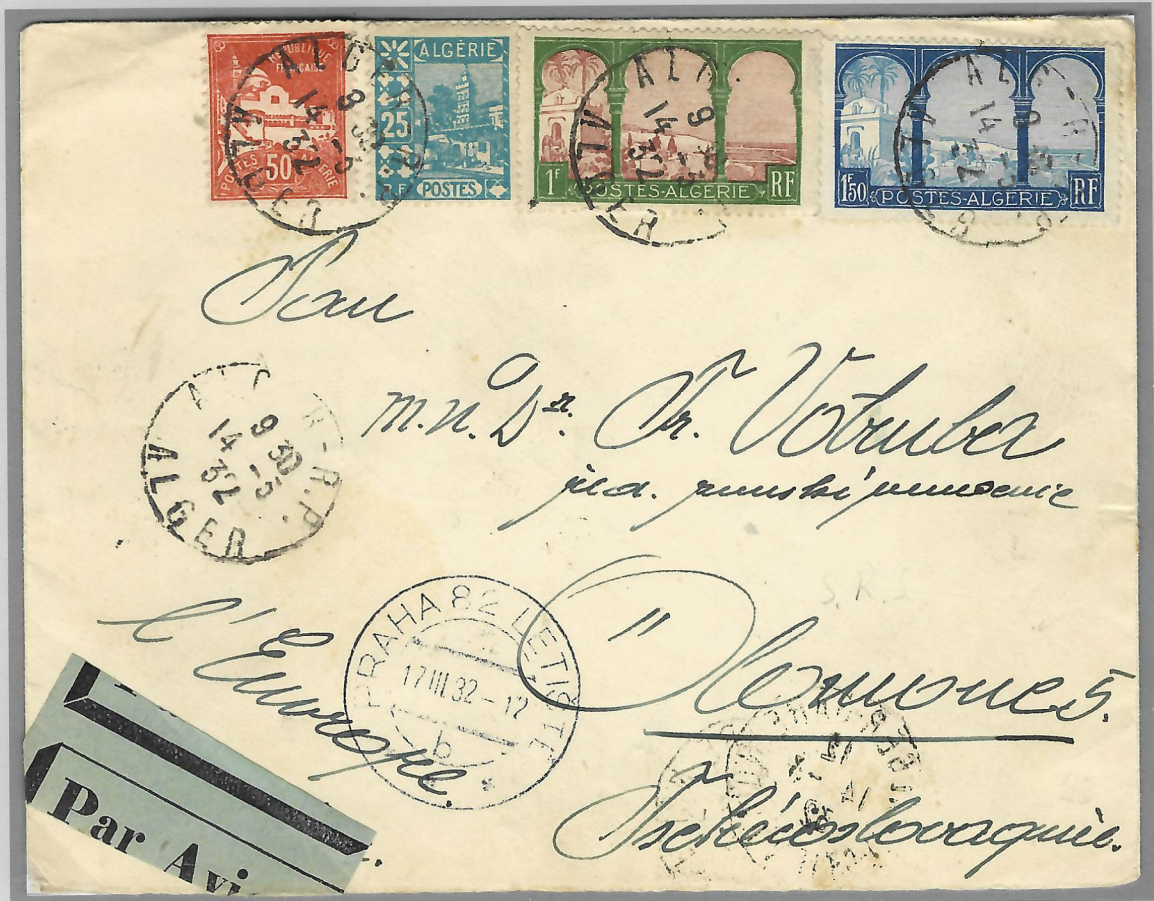 RÉPUBLIQUE
FRANCAISE
50
POSTES ALGÉRIE
ALGÉRIE
25
POSTES
1F POSTES-ALGÉRIE RF
1F50 POSTES-ALGÉRIE RF
ALGER-R.P.
9 30
14 -3
32
ALGER
Pan
m.n. Dr. Fr. Votruba
Olomouc 5.
Tschécoslovaquie.
l'Europe.
PRAHA 82 LETIŠTĚ
17 III 32 - 12
b
Par Avi